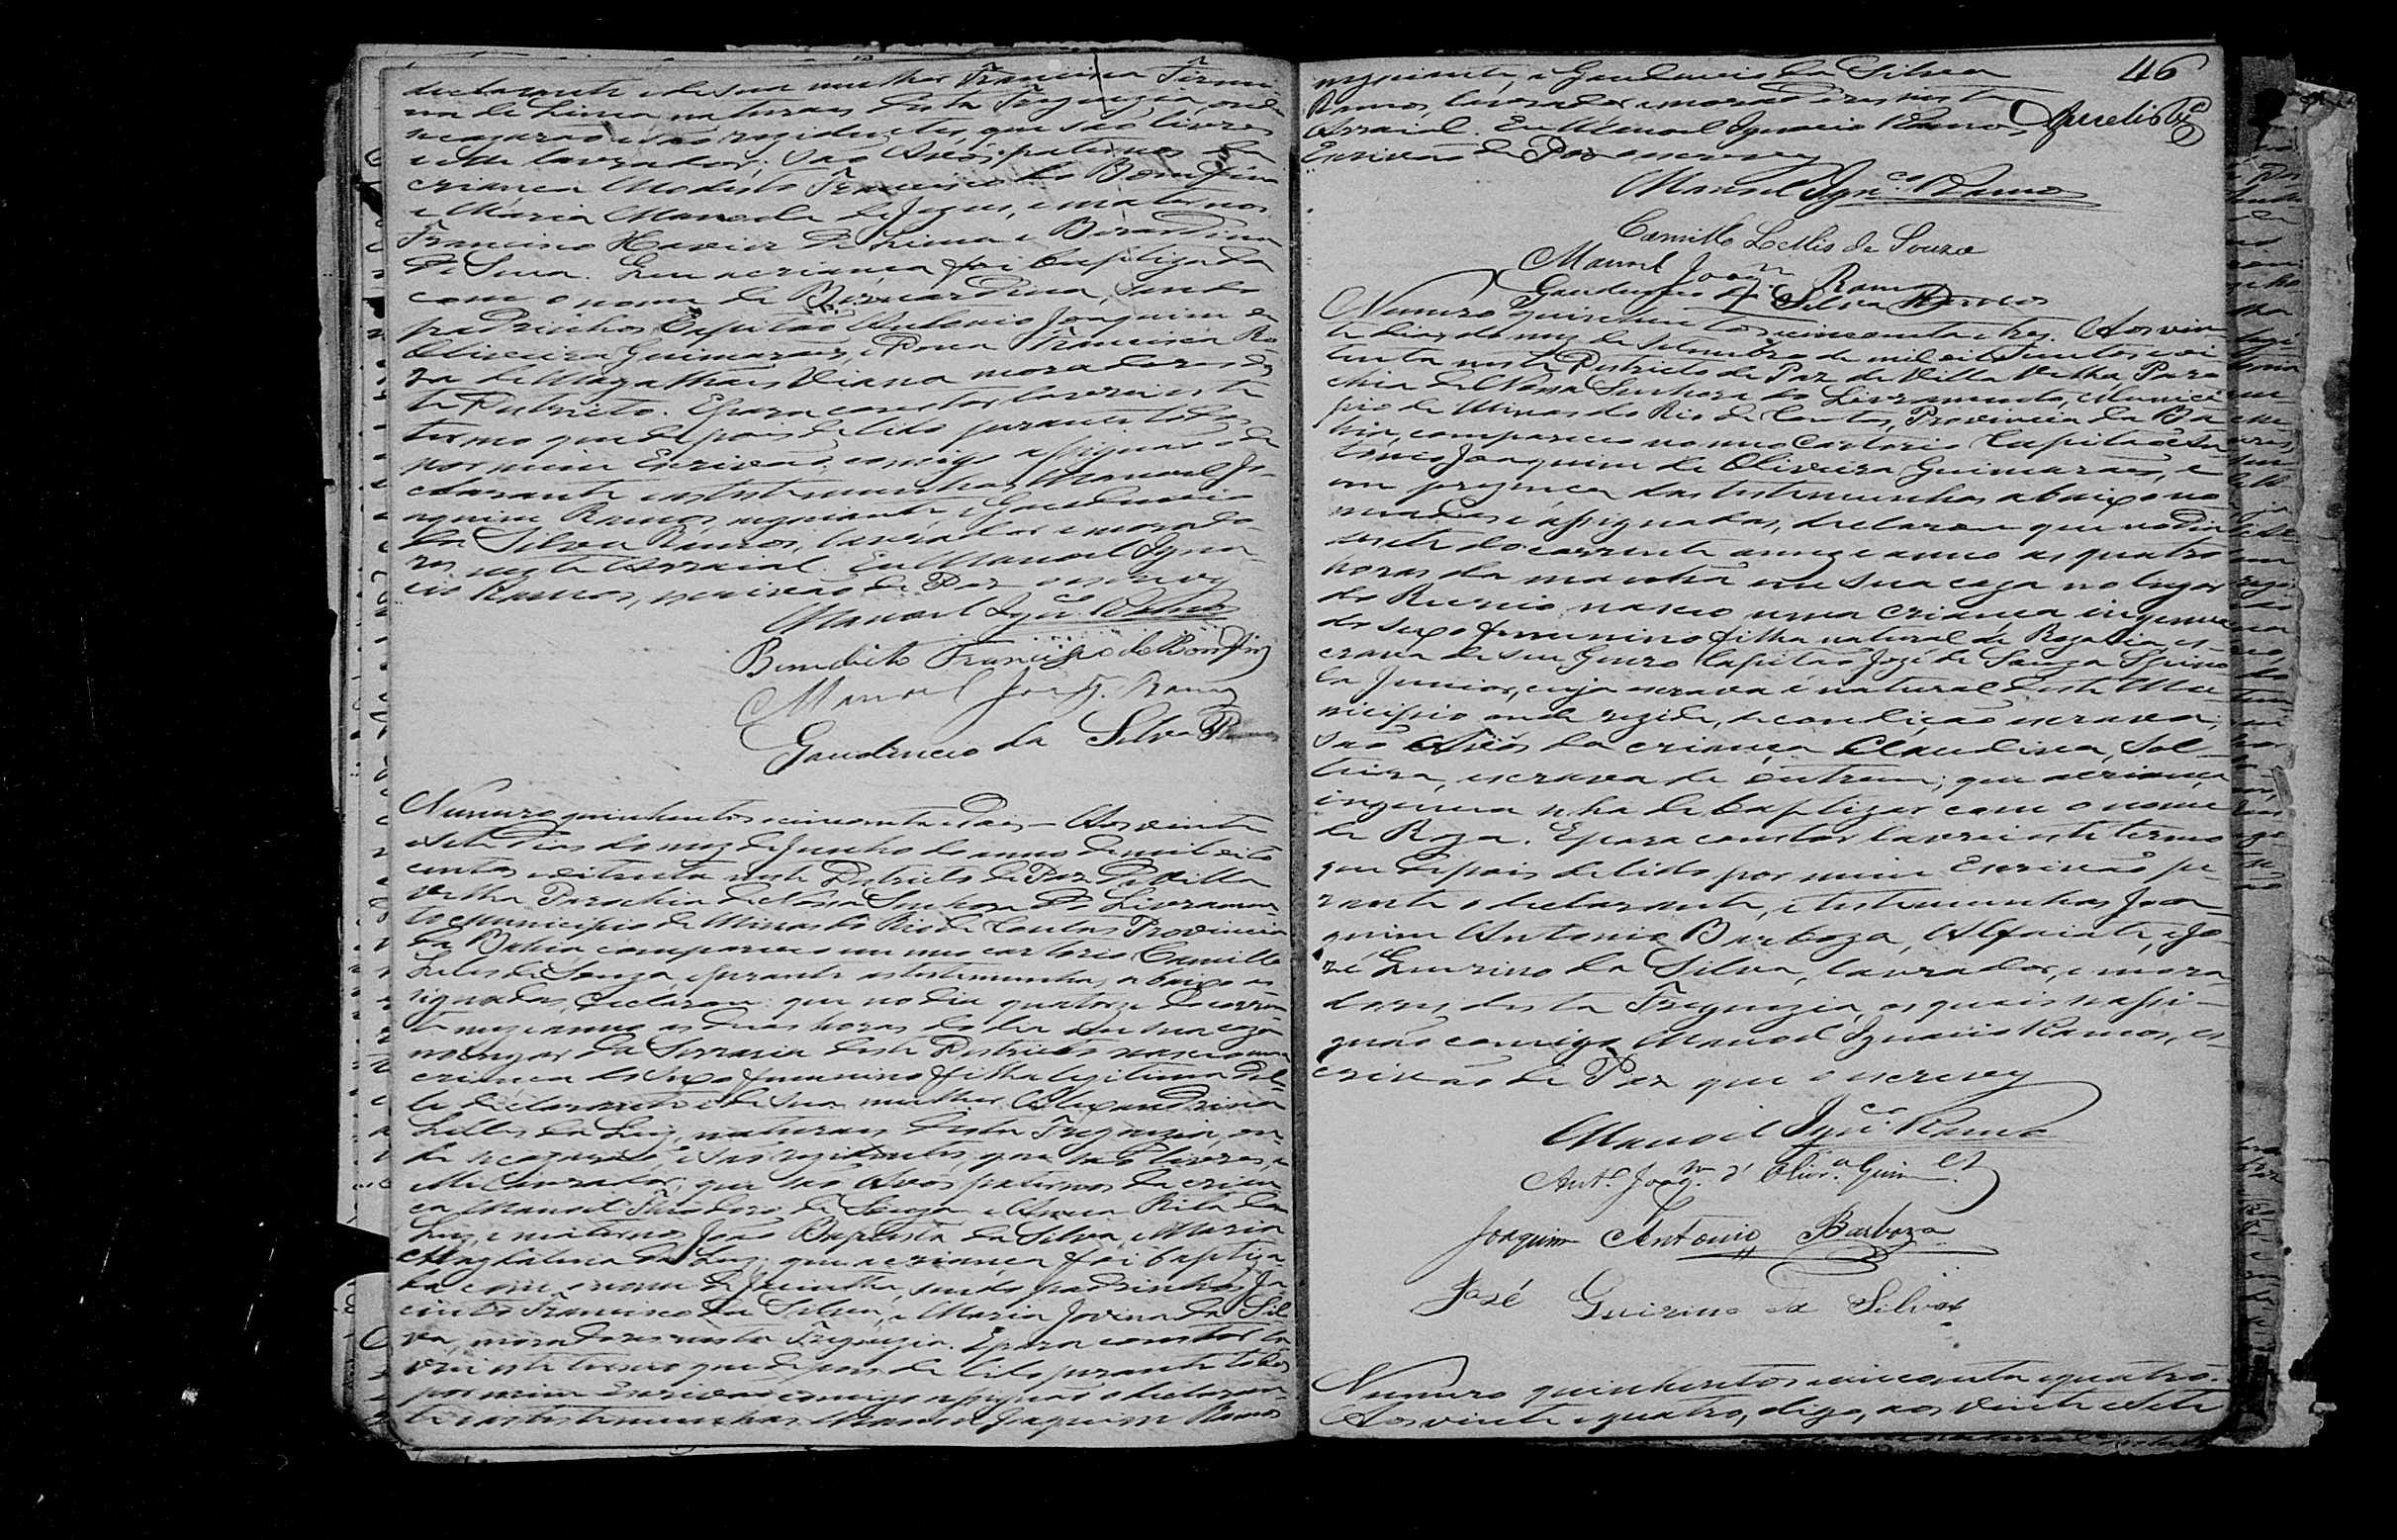 declarante e de sua mulher Francisca Firmi-
na de Lima naturaes desta Freguezia, onde
se cazarão e são rezidentes, que são livres
e elle lavrador; são Avós paternos da
criança Modesto Francisco do Bomfim
e Maria Manoela de Jezus, e maternos
Francisco Xavier de Lima e Bernardina
de Lima. Que a criança foi baptizada
com o nome de Bernardina, sendo
padrinhos Capitão Antonio Joaquim de
Oliveira Guimarães, e Dona Francisca Ro
za de Magalhães Viana moradores des
te Destricto. E para constar lavrei este
termo que depois de lido perante todos
por mim Escrivão, comigo assignão o de
clarante e as testemunhas Manoel Jo
aquim Ramos negociante, e Gaudencio
da Silva Ramos, lavrador e morado
res neste Arraial. Eu Manoel Igna
cio Ramos, escrivão de Paz o escrevy
Manoel Ignco. Ramos
Benedicto Francisco do Bomfim
Manoel Joaqm. Ramos
Gaudencio da Silva Ramos
Numero quinhentos e cincoenta e dois — Aos vinte
e sete dias do mez de Junho do anno de mil oito
centos e oitenta neste Destricto de Paz da Villa
Velha Parochia de Nossa Senhora do Livramen-
to Municipio de Minas do Rio de Contas Provincia
da Bahia, compareceo em meo cartorio Camillo
Lelis de Souza, e perante as testemunhas abaixo as
signadas, declarou: que no dia quatorze do corren
te mez e anno as duas horas do dia em sua caza
no lugar da Serraria deste Destricto nasceo uma
criança do sexo femenino filha legitima del
le declarante e de sua mulher Alexandrina
Lellis da Luz, naturaes desta Freguezia, on
de se cazarão, e são rezidentes, que são livres, e
elle lavrador, que são Avós paternos da crian
ça Manoel Theodoro de Souza e Anna Rita da
Luz, e maternos João Baptista da Silva, e Maria
Magdalena da Luz; que a criança foi baptiza
da com o nome de Jacintha, sendo padrinhos Ja
cinto Francisco da Silva, e Maria Jovina da Sil
va, moradores nesta Freguezia. E para constar la
vrei este termo que depois de lido perante todos
por mim Escrivão comigo assignão o declaran
te e as testemunhas Manoel Joaquim Ramos
46
negociante, e Gaudencio da Silva
Ramos, lavrador e moradores neste
Arraial. Eu Manoel Ignacio Ramos,
Escrivão de Paz o escrevy
Manoel Ignco. Ramos
Camillo Lellis de Souza
Manoel Joaqm. Ramos
Gaudencio da Silva Ramos
Numero quinhentos e cincoenta e tres. Aos vin
te dias do mez de Setembro de mil oito centos e oi
tenta neste Destricto de Paz de Villa Velha, Paro
chia de Nossa Senhora do Livramento, Munici
pio de Minas do Rio de Contas, Provincia da Ba
hia, compareceo no meo Cartorio Capitão An
tonio Joaquim de Oliveira Guimarães, e
em prezença das testemunhas abaixo no
meadas e assignadas, declarou que no dia
sete do corrente mez e anno as quatro
horas da manhã em sua caza no lugar
do Recreio nasceo uma criança ingenua
do sexo femenino filha natural de Rozalia, es
crava de seu Genro Capitão José de Souza Spino
la Junior, cuja escrava é natural deste Mu
nicipio onde rezide, de condição escrava;
são Avós da criança Claudina, sol
teira, escrava de outrem; que a criança
ingenua se ha de baptizar com o nome
de Roza. E para constar lavrei este termo
que depois de lido por mim Escrivão pe
rante o declarante, e testemunhas Joa-
quim Antonio Barboza, Alfaiate, e Jo-
zé Guirino da Silva, lavrador, e mora
dores desta Freguezia, os quais assi-
gnão comigo Manoel Ignacio Ramos, es-
crivão de Paz que o escrevy
Manoel Ignco. Ramos
Anto. Joaqm. d' Olivra. Guimes.
Joaquim Antonio Barboza
José Guirino da Silva
Numero quinhentos e cincoenta e quatro.
Aos vinte e quatro, digo, aos vinte e sete